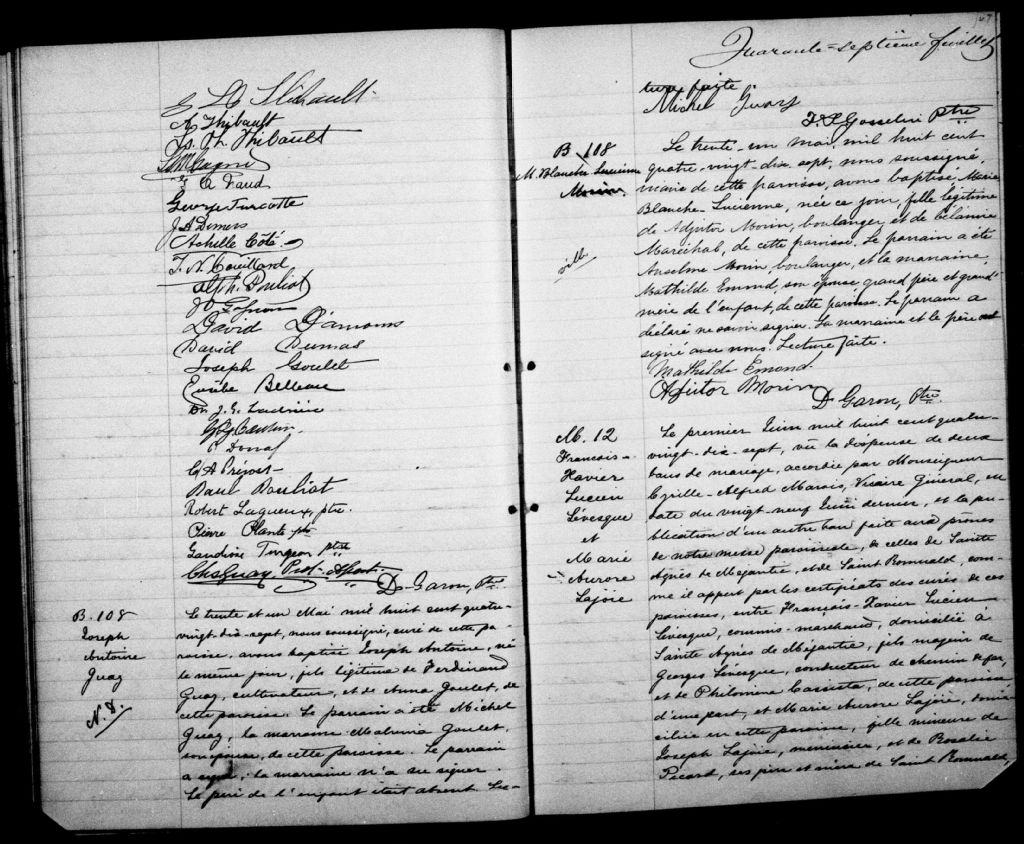 Thibault
A Thibault
Js. Ph. Thibault
George Turcotte
J A Demers
Achille Côté
Alph. Pouliot
David D'amours
David Dumas
Joseph Goulet
Eusèbe Belleau
Dr. J. E. Ladrière
C A Prévost
Paul Pouliot
Robert Lagueux, ptre.
Pierre Plante ptre
Gaudiose Turgeon ptre
Chs Guay, Prot. Apost.
D. Garon, Ptre
B. 108
Joseph
Antoine
Guay
N. D.
Le trente et un Mai mil huit cent quatre-
vingt-dix-sept, nous soussigné, curé de cette pa-
roisse, avons baptisé Joseph Antoine, né
le même jour, fils légitime de Ferdinand
Guay, cultivateur, et de Anna Goulet, de
cette paroisse. Le parrain a été Michel
Guay, la marraine Malvina Goulet,
son épouse, de cette paroisse. Le parrain
a signé, la marraine n'a su signer.
Le père de l'enfant était absent. Lec-
67
Quarante-septième feuillet
ture faite
Michel Guay
F. X. Gosselin Ptre
B. 108
M. Blanche Lucienne
Morin
ville
Le trente-un mai, mil huit cent
quatre-vingt-dix sept, nous soussigné,
de cette paroisse, avons baptisé Marie
Blanche-Lucienne, née ce jour, fille légitime
de Adjutor Morin, boulanger, et de Délainie
Maréchal, de cette paroisse. Le parrain a été
Anselme Morin boulanger, et la marraine,
Mathilde Emond, son épouse grand père et grand'
mère de l'enfant, de cette paroisse. Le parrain a
déclaré ne savoir signer. La marraine et le père ont
signé avec nous. Lecture faite.
Mathilde Emond
Adjutor Morin
D. Garon, Ptre
M. 12
François-
Xavier
Lucien
Lévesque
et
Marie
Aurore
Lajoie
Le premier Juin mil huit cent quatre-
vingt-dix-sept, vû la dispense de deux
bans de mariage, accordée par Monseigneur
Cyrille-Alfred Marois, Vicaire Général, en
date du vingt-neuf Juin dernier, et la pu-
blication d'un autre ban faite aux prônes
de notre messe paroissiale, de celles de Sainte
Agnès de Mégantic, et de Saint Romuald, com-
me il appert par les certificats des curés de ces
paroisses, entre François-Xavier Lucien
Lévesque, commis-marchand, domicilié à
Sainte Agnès de Mégantic, fils majeur de
Georges Lévesque, conducteur de chemin de fer,
et de Philomène Cassista, de cette paroisse,
d'une part, et Marie Aurore Lajoie, domi-
ciliée en cette paroisse, fille mineure de
Joseph Lajoie, menuisier, et de Rosalie
Picard, ses père et mère de Saint Romuald,